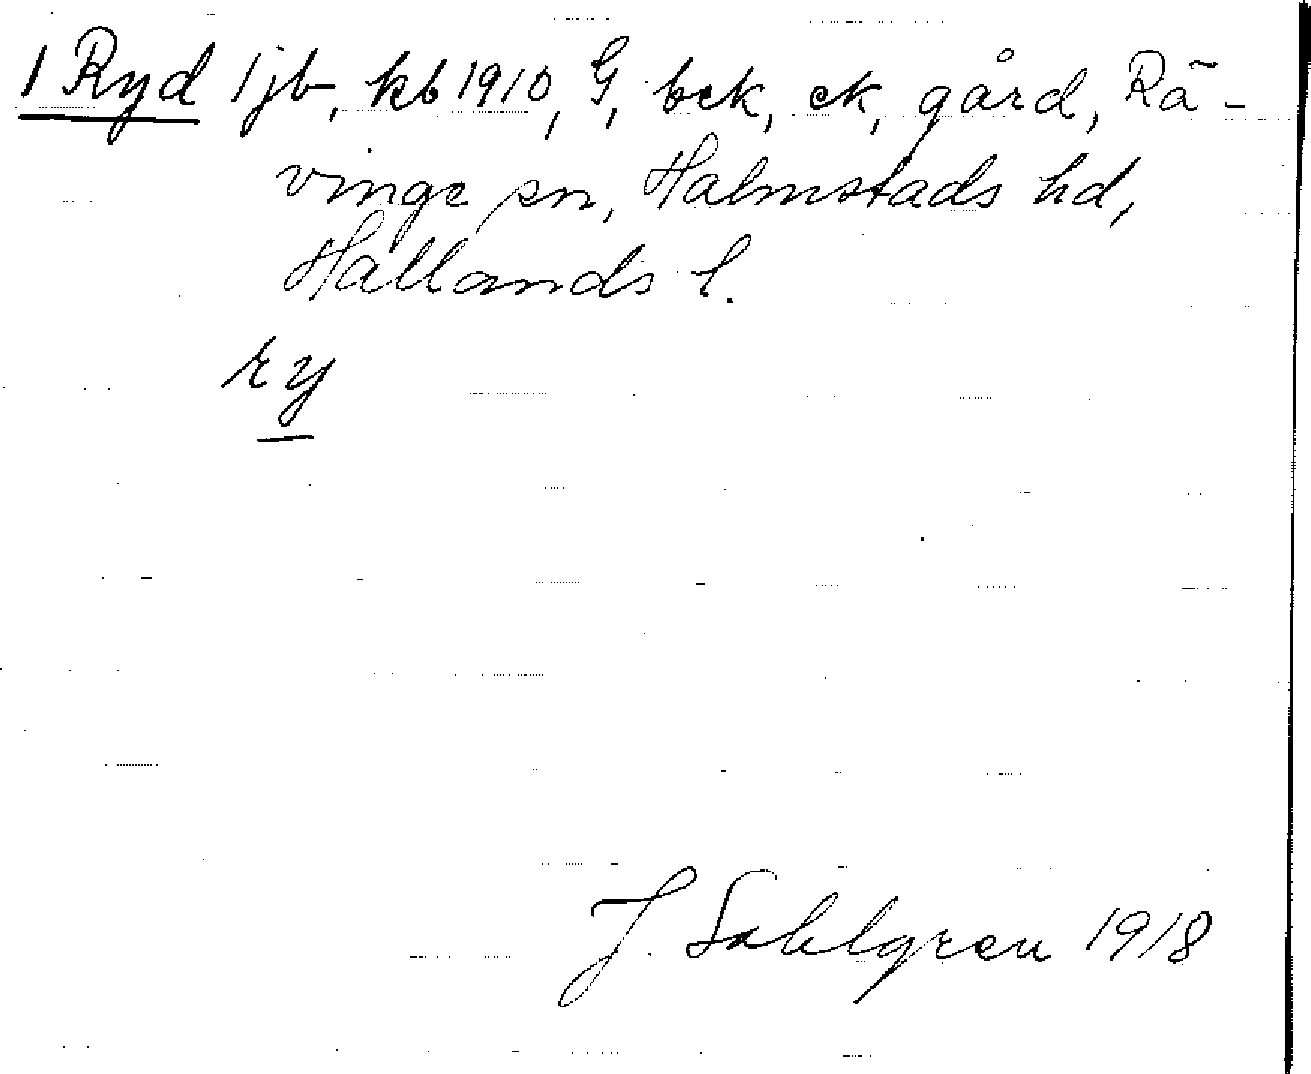 1 Ryd 1 jb, kb 1910, G, bek, ek, gård, Rä-
vinge sn, Halmstads hd,
Hallands l.
ry
J. Sahlgren 1918